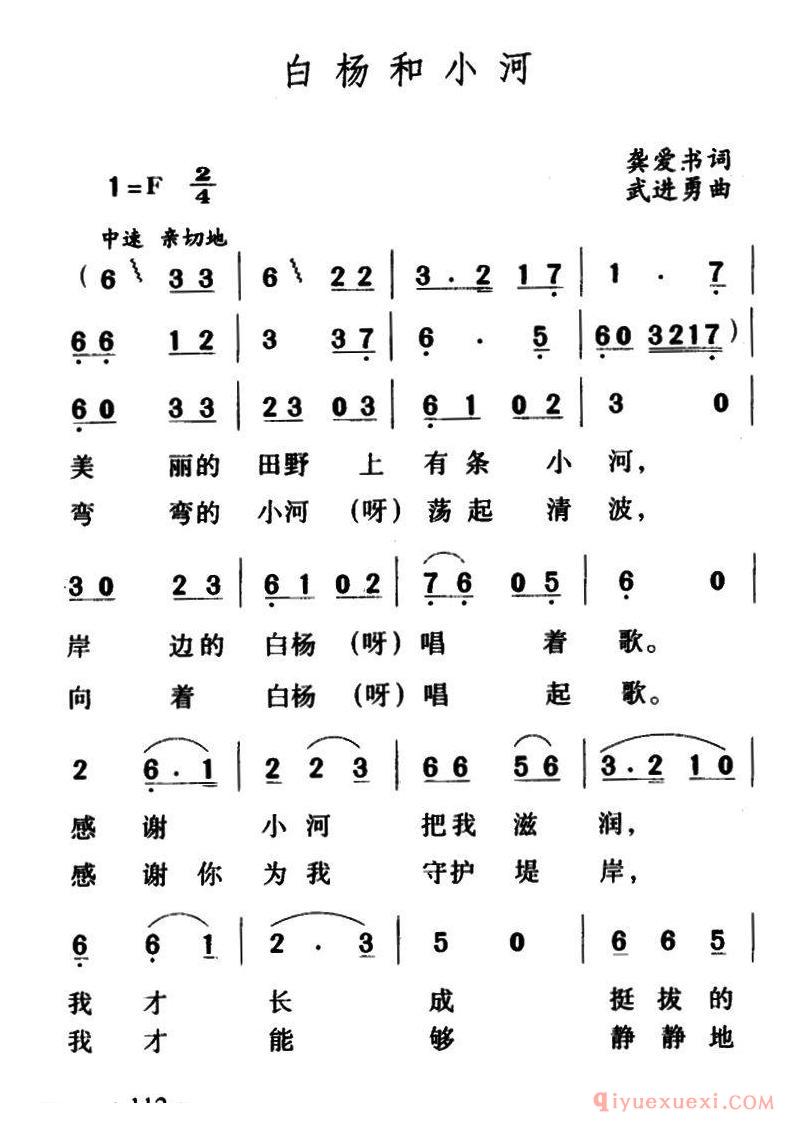 白杨和小河
龚爱书词
1=F 2/4
武进勇曲
中速 亲切地
(6 33 | 6 22 | 3·2 17 | 1 · 7 |
66 12 | 3 37 | 6 · 5 | 60 3217) |
60 33 | 23 03 | 61 02 | 3 0 |
美 丽的 田野 上 有条 小 河,
弯 弯的 小河 (呀) 荡起 清 波,
30 23 | 61 02 | 76 05 | 6 0 |
岸 边的 白杨 (呀) 唱 着 歌。
向 着 白杨 (呀) 唱 起 歌。
2 6·1 | 2 2 3 | 66 56 | 3·2 10 |
感 谢 小 河 把我 滋 润,
感 谢 你 为 我 守护 堤 岸,
6 6 1 | 2 · 3 | 5 0 | 6 6 5 |
我 才 长 成 挺 拔 的
我 才 能 够 静 静 地
112
qiyuexuexi.com